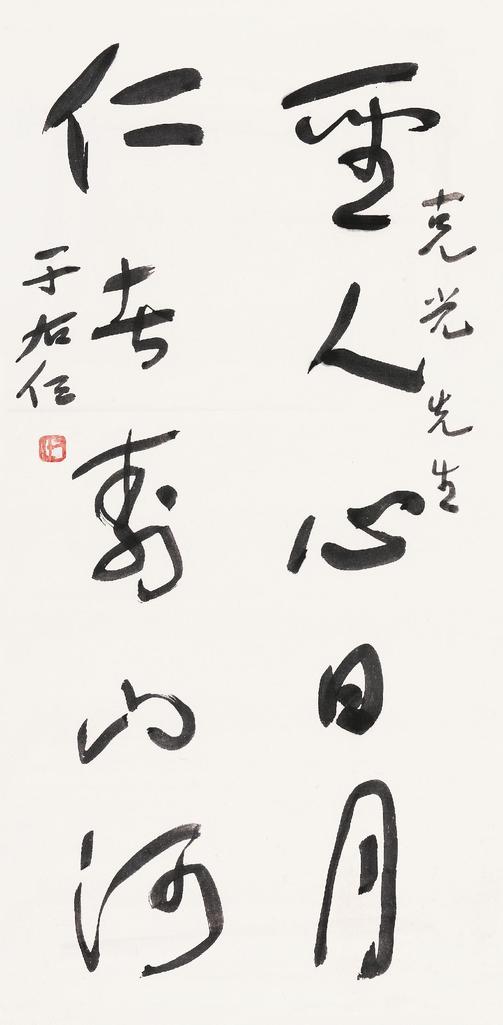 克光先生
聖人心日月
仁者壽山河
于右任